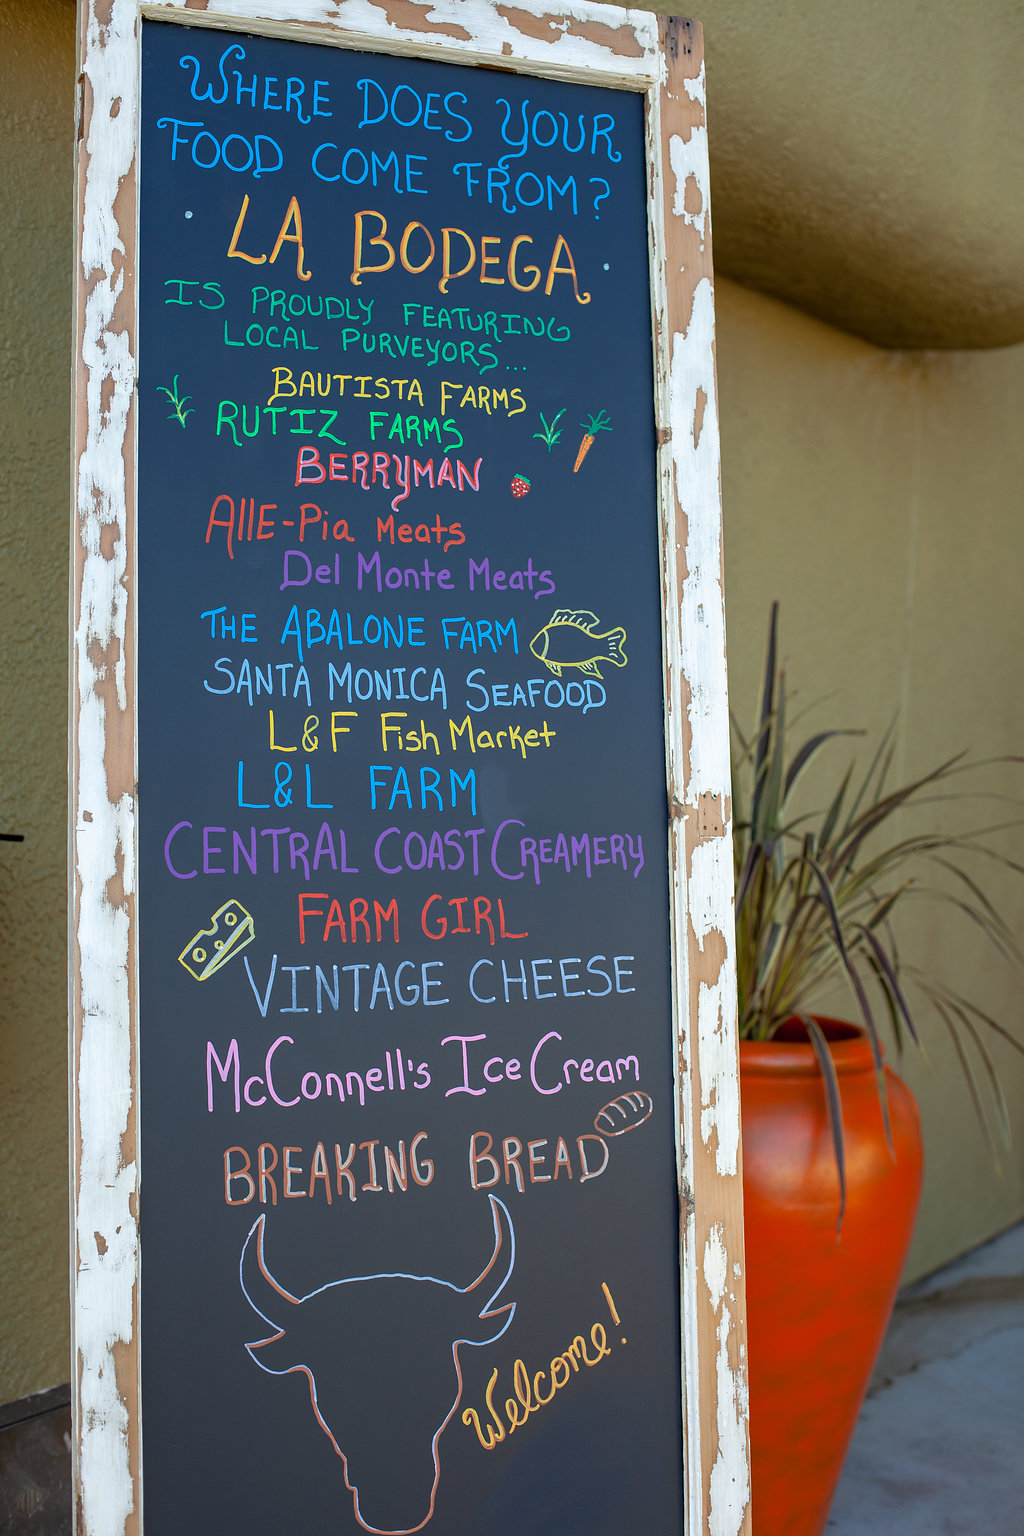 WHERE DOES YOUR
FOOD COME FROM?
LA BODEGA
IS PROUDLY FEATURING
LOCAL PURVEYORS...
BAUTISTA FARMS
RUTIZ FARMS
BERRYMAN
AllE-Pia Meats
Del Monte Meats
THE ABALONE FARM
SANTA MONICA SEAFOOD
L&F Fish Market
L&L FARM
CENTRAL COAST CREAMERY
FARM GIRL
VINTAGE CHEESE
McConnell's Ice Cream
BREAKING BREAD
Welcome!